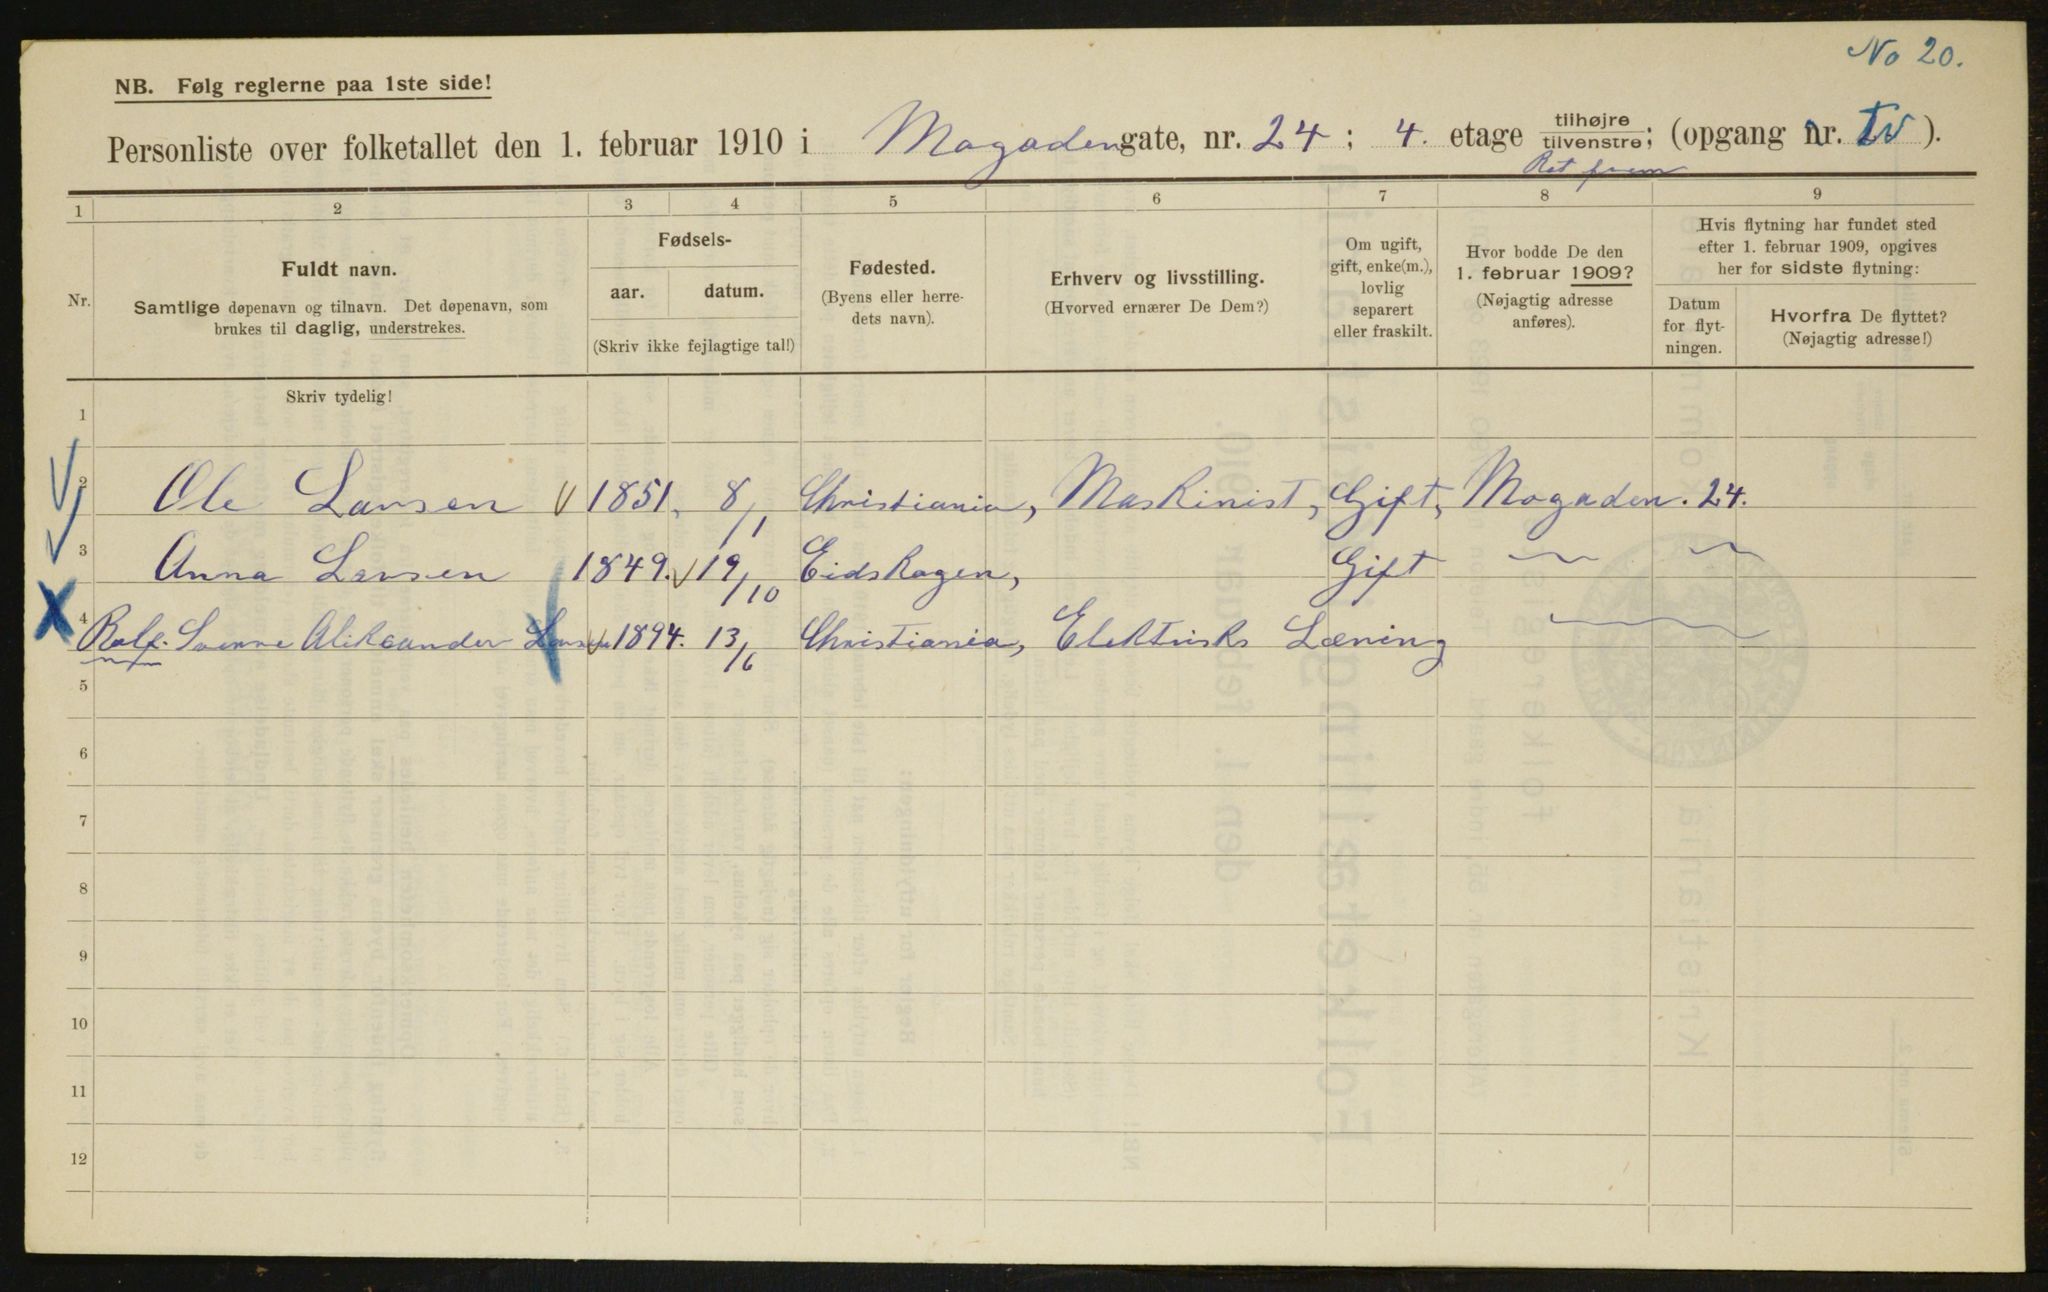 No 20.
NB. Følg reglerne paa 1ste side!
Personliste over folketallet den 1. februar 1910 i Mogadengate, nr. 24; 4. etage tilhøjre/tilvenstre; (opgang nr. tv).
Ret frem
1 2 3 4 5 6 7 8 9
Nr.
Fuldt navn.
Samtlige døpenavn og tilnavn. Det døpenavn, som
brukes til daglig, understrekes.
Fødsels-
aar. datum.
(Skriv ikke fejlagtige tal!)
Fødested.
(Byens eller herre-
dets navn).
Erhverv og livsstilling.
(Hvorved ernærer De Dem?)
Om ugift,
gift, enke(m.),
lovlig
separert
eller fraskilt.
Hvor bodde De den
1. februar 1909?
(Nøjagtig adresse
anføres).
Hvis flytning har fundet sted
efter 1. februar 1909, opgives
her for sidste flytning:
Datum
for flyt-
ningen.
Hvorfra De flyttet?
(Nøjagtig adresse!)
Skriv tydelig!
1
2 Ole Larsen 1851, 8/1 Christiania, Maskinist, Gift, Mogaden. 24.
3 Anna Larsen 1849. 19/10 Eidskogen, Gift
4 Rolf. Sverre Aliksander Larsen 1894. 13/6 Christiania, Elektrisks Læning
5
6
7
8
9
10
11
12